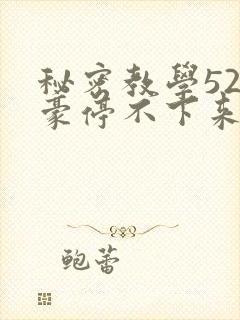 秘密教學52
豪停不下来
鲍蕾